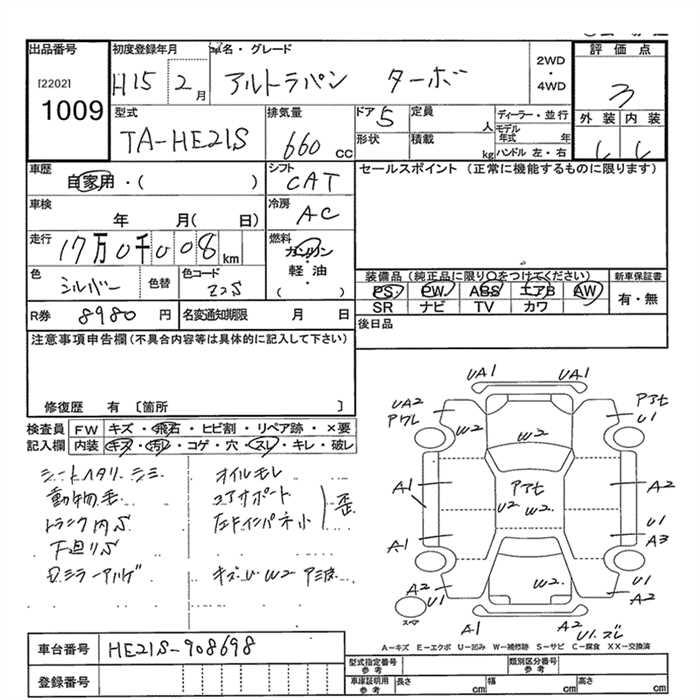 出品番号
[2202]
1009
初度登録年月
H15 2月
車名・グレード
アルトラパン ターボ
2WD
・
4WD
評価点
3
外装 内装
型式
TA-HE21S
排気量
660 cc
ドア 5
定員
人
形状
積載
kg
ディーラー・並行
モデル年式 年
ハンドル 左・右
車歴
自家用・( )
シフト
CAT
セールスポイント (正常に機能するものに限ります)
車検
年 月( 日)
冷房
AC
走行
17万0千008 km
燃料
ガソリン
軽油
( )
色
シルバー
色替
色コード
Z2S
装備品 (純正品に限り○をつけてください)
PS PW ABS エアB AW
SR ナビ TV カワ
新車保証書
有・無
R券 8980円
名変通知期限 月 日
後日品
注意事項申告欄 (不具合内容等は具体的に記入して下さい)
修復歴 有 〔箇所 〕
検査員
記入欄
FW キズ・飛石・ヒビ割・リペア跡・×要
内装 キズ・汚レ・コゲ・穴・スレ・キレ・破レ
シートヘタリ シミ
動物毛
トランク内S
下廻りS
オイルモレ
コアサポート
左Fインパネ小
歪
キズ U W2 アミ波
UA1 UA1
UA2
W2
アセ
U1
W2
A1
アセ
U2 W2
A2
A1
U1
A3
A2
U1
W2
A2
U1
スペア
A1
A2
U1.ズレ
A-キズ E-エクボ U-凹み W-補修跡 S-サビ C-腐食 XX-交換済
車台番号 HE21S-908698
登録番号
型式指定番号
参考
類別区分番号
参考
車庫証明用
参考
長さ cm 幅 cm 高さ cm